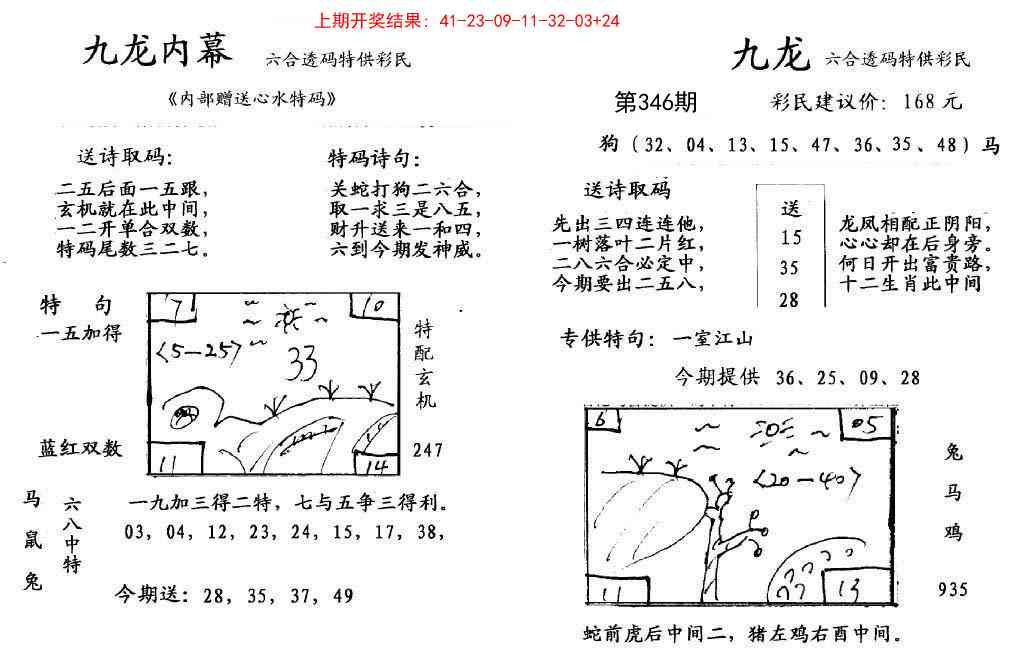 上期开奖结果：41-23-09-11-32-03+24
九龙内幕 六合透码特供彩民
《内部赠送心水特码》
送诗取码：
二五后面一五跟，
玄机就在此中间，
一二开单合双数，
特码尾数三二七。
特码诗句：
关蛇打狗二六合，
取一求三是八五，
财升送来一和四，
六到今期发神威。
特 句
一五加得
蓝红双数
17
10
〈5-25〉
33
11
14
特配玄机
247
马鼠兔
六八中特
一九加三得二特，七与五争三得利。
03，04，12，23，24，15，17，38，
今期送：28，35，37，49
九龙 六合透码特供彩民
第346期 彩民建议价：168元
狗（32、04、13、15、47、36、35、48）马
送诗取码
先出三四连连他，
一树落叶二片红，
二八六合必定中，
今期要出二五八，
送
15
35
28
龙凤相配正阴阳，
心心却在后身旁。
何日开出富贵路，
十二生肖此中间
专供特句：一室江山
今期提供 36、25、09、28
6
05
〈20-40〉
11
13
兔
马
鸡
935
蛇前虎后中间二，猪左鸡右酉中间。